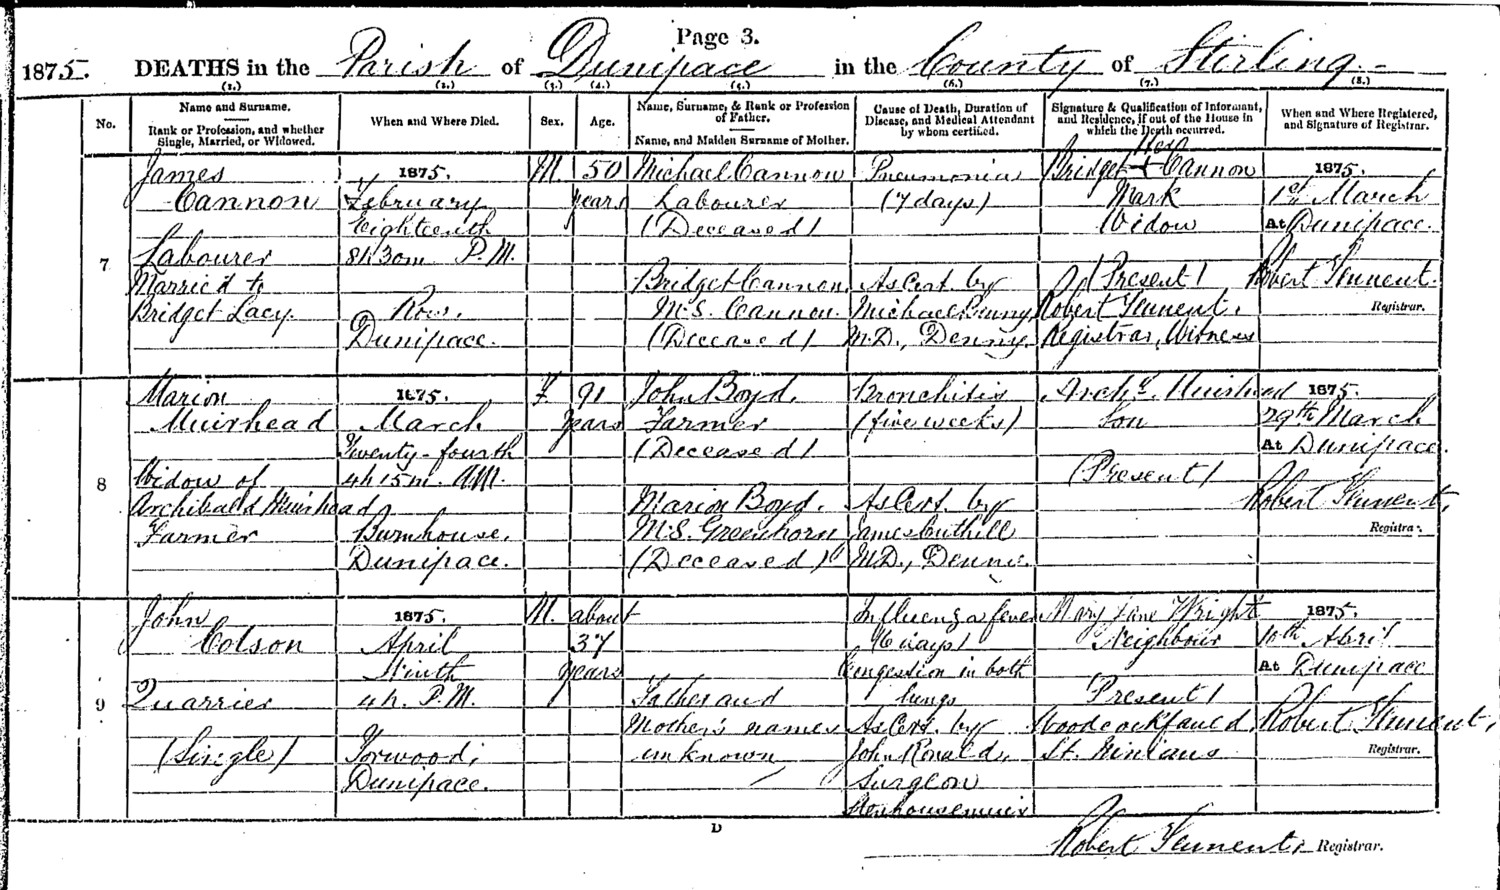 Page 3.
1875. DEATHS in the Parish of Dunipace in the County of Stirling.
(1.) (2.) (3.) (4.) (5.) (6.) (7.) (8.)
No.
Name and Surname.
Rank or Profession, and whether
Single, Married, or Widowed.
When and Where Died.
Sex.
Age.
Name, Surname, & Rank or Profession
of Father.
Name, and Maiden Surname of Mother.
Cause of Death, Duration of
Disease, and Medical Attendant
by whom certified.
Signature & Qualification of Informant,
and Residence, if out of the House in
which the Death occurred.
When and Where Registered,
and Signature of Registrar.
7
James
Cannon
Labourer
Married to
Bridget Lacy.
1875.
February
Eighteenth
8h. 30m. P.M.
Row,
Dunipace.
M.
50
years
Michael Cannon
Labourer
(Deceased)
Bridget Cannon,
M.S. Cannon.
(Deceased)
Pneumonia
(7 days)
As Cert. by
Michael
M.D., Denny.
Her
Bridget + Cannon
Mark
Widow
(Present)
Robert Tennent.
Registrar, Witness
1875.
1st March
At Dunipace.
Robert Tennent.
Registrar.
8
Marion
Muirhead
Widow of
Archibald Muirhead
Farmer
1875.
March
Twenty-fourth
4h 15m. A.M.
Burnhouse,
Dunipace.
F.
91
years
John Boyd,
Farmer
(Deceased)
Marion Boyd.
M.S. Greenhorn
(Deceased)
Bronchitis
(five weeks)
As Cert. by
James Cuthill
M.D., Denny.
Archd. Muirhead
Son
(Present)
1875.
29th March
At Dunipace.
Robert Tennent,
Registrar.
9
John
Colson
Quarrier
(Single)
1875.
April
Ninth
4h. P.M.
Torwood,
Dunipace.
M.
about
37
years
Father and
Mother's names
unknown
Influenza fever
(6 days)
Congestion in both
lungs
As Cert. by
John Ronald,
Surgeon
Stenhousemuir
Mary Jane Wright
Neighbour
(Present)
Woodcockfauld
St. Ninians
1875.
10th April
At Dunipace
Robert Tennent,
Registrar.
D
Robert Tennent, Registrar.